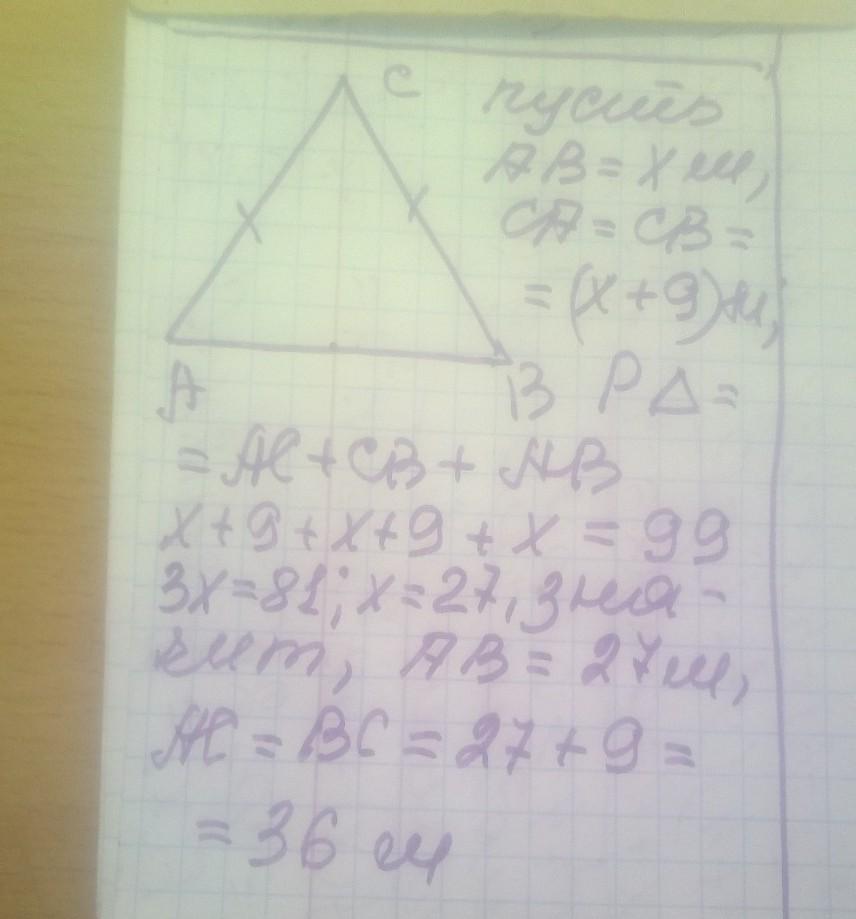 C
пусть
AB = x м,
CA = CB =
= (x + 9) м,
A
B
P △ =
= AC + CB + AB
x + 9 + x + 9 + x = 99
3x = 81; x = 27, зна-
чит, AB = 27 м,
AC = BC = 27 + 9 =
= 36 м